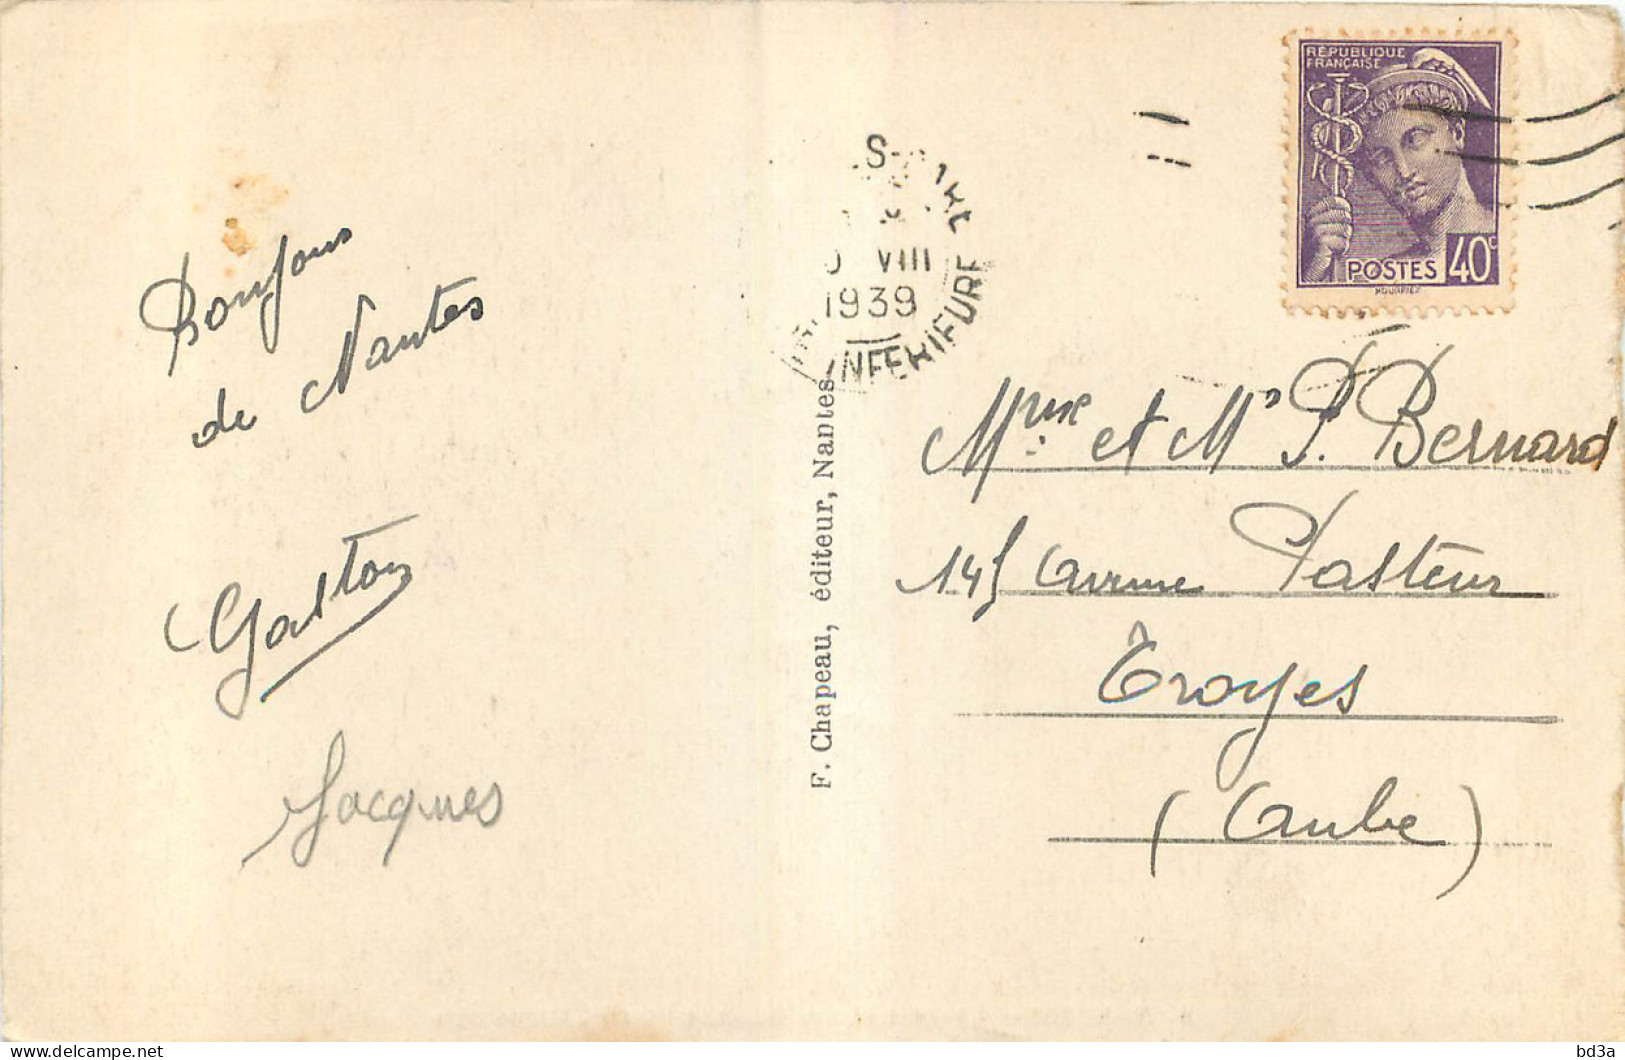 Bonjour
de Nantes
Gaston
Jacques
F. Chapeau, éditeur, Nantes
VIII
1939
INFERIEURE
RÉPUBLIQUE
FRANÇAISE
POSTES 40c
Mme et Mr P. Bernard
145 Avenue Pasteur
Troyes
(Aube)
bd3a